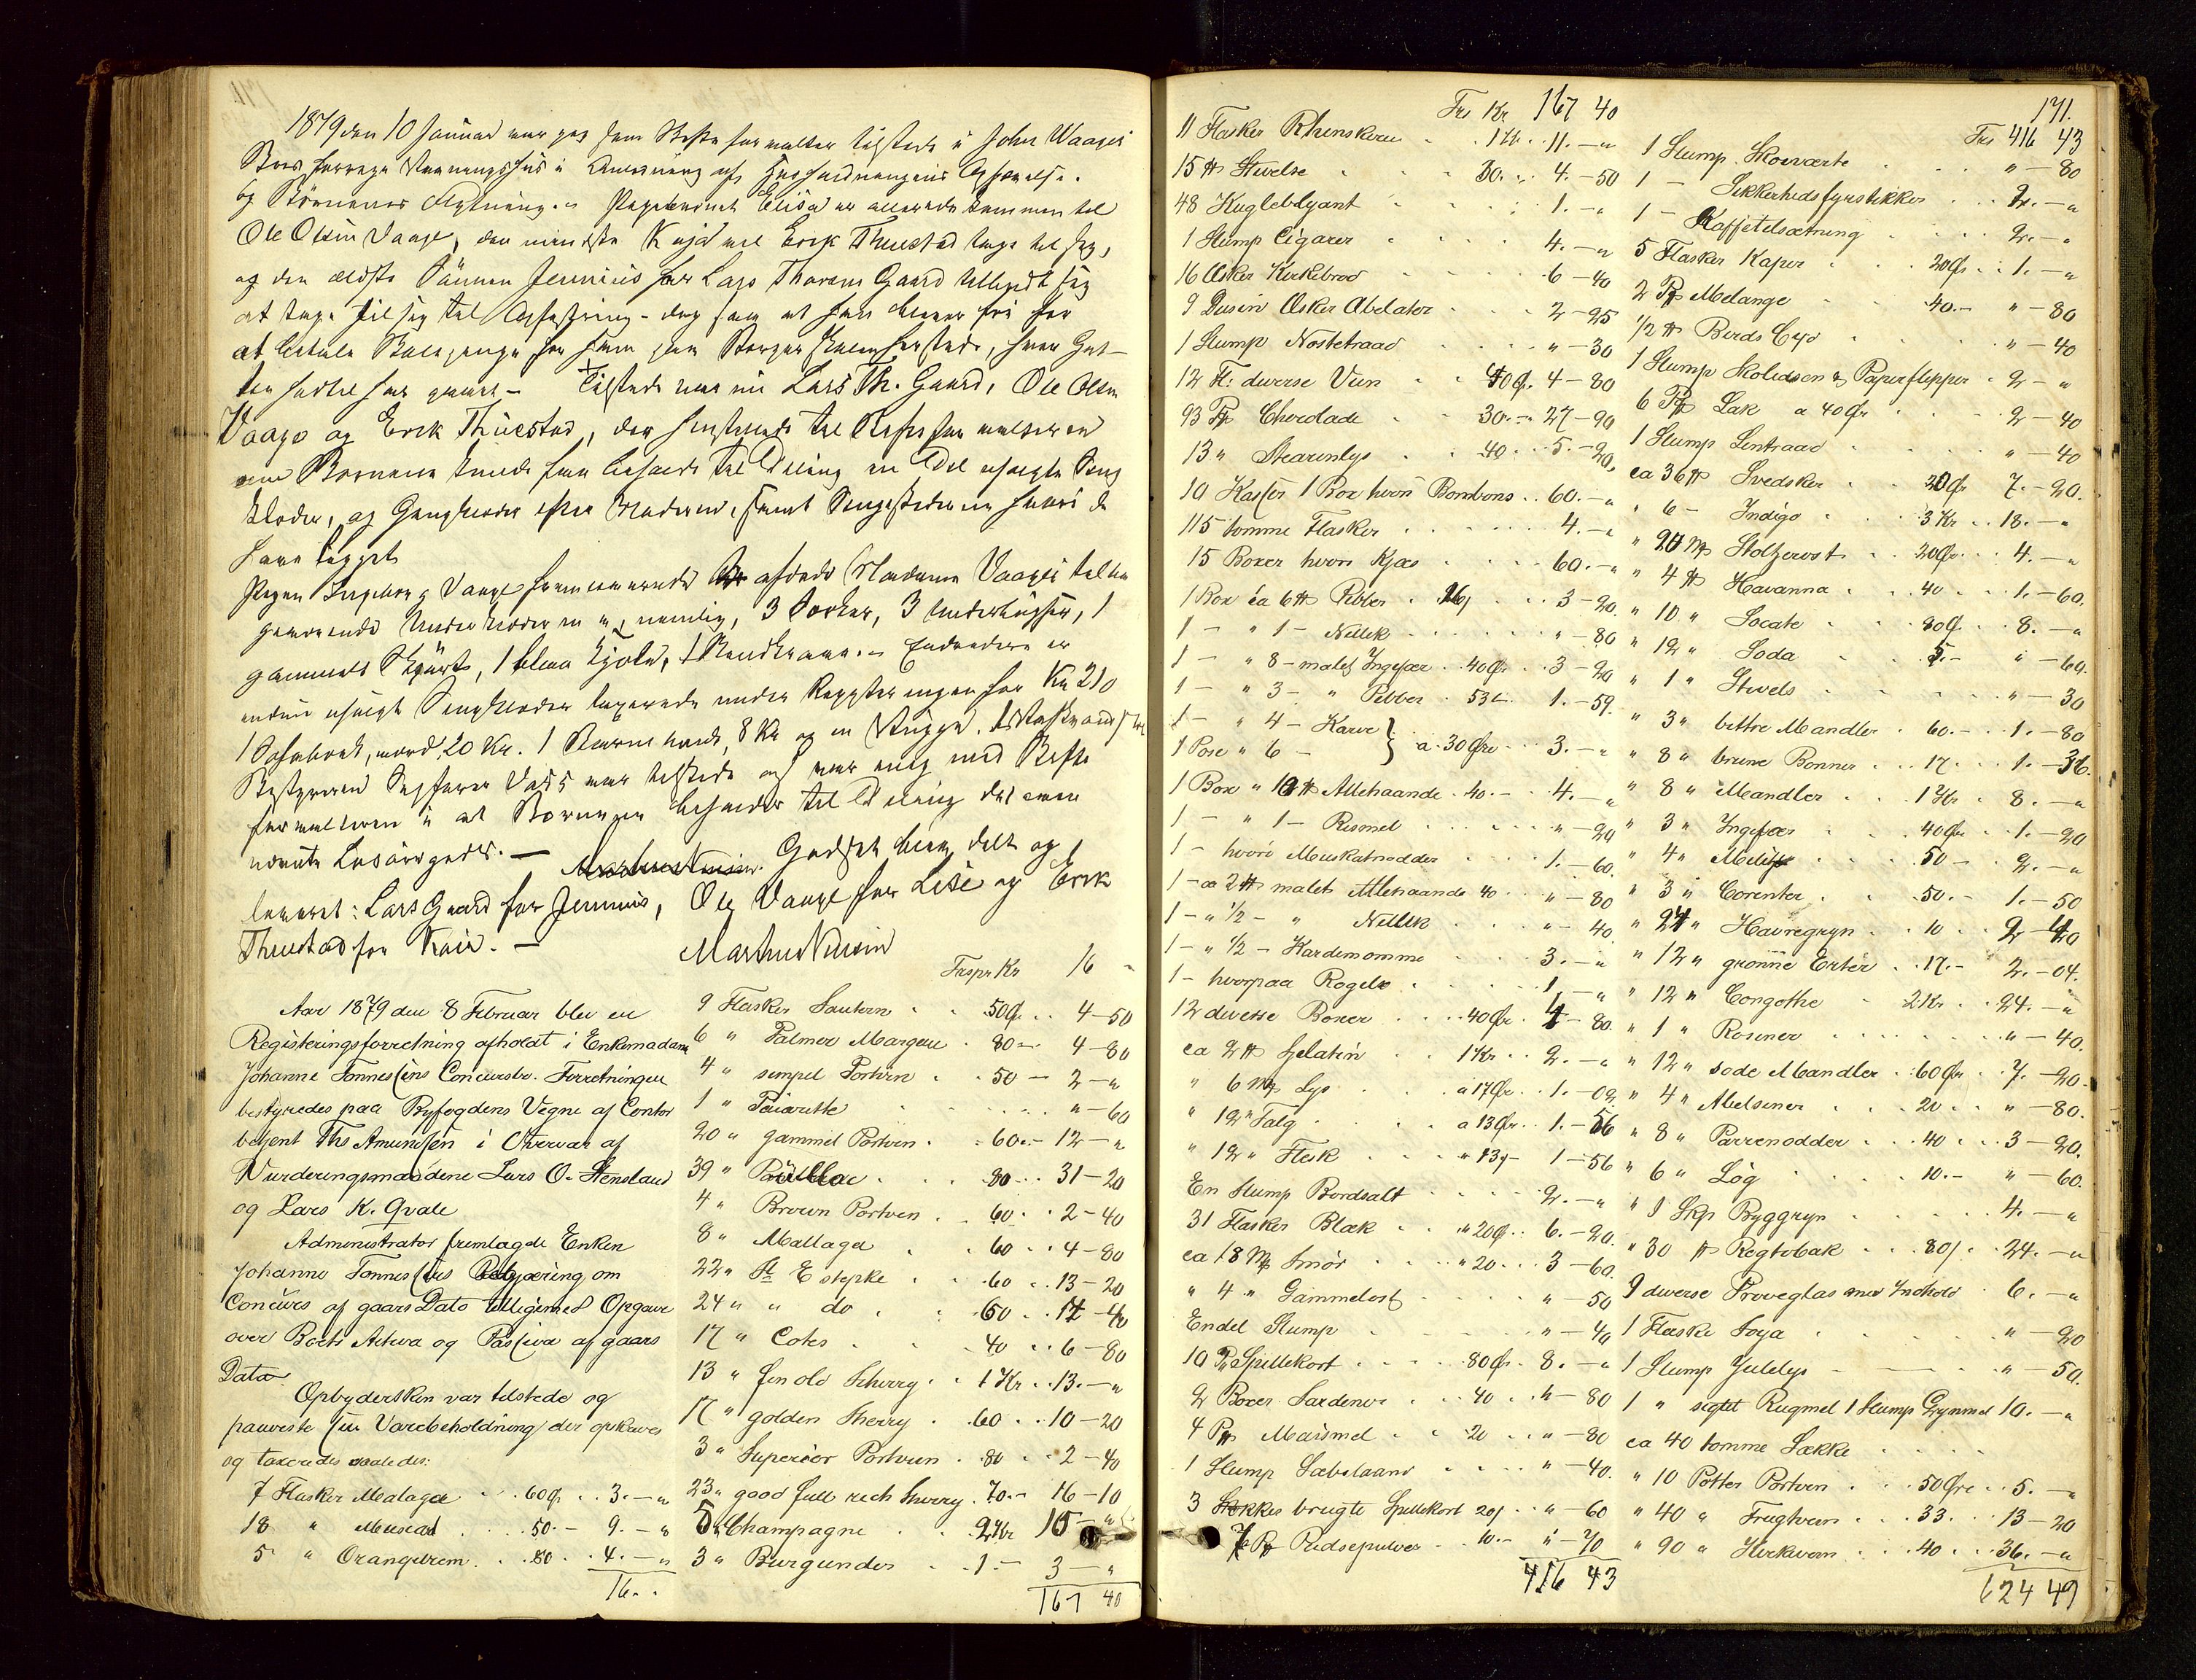 1879 den 10 Januar var jeg som Skifteforvalter tilstede i John Waages
Boes forrige Vaaningshus i Anledning af Husholdningens Ophævelse
og Børnenes Flytning. Pigebarnet Elisa er allerede kommen til
Ole Olsen Vaage, den mindste Kaja vil Erik Thuestad tage til sig,
og den ældste Sønnen Jennius har Lars Thorsen Gaard tilbudt sig
at tage til sig til Opfostring - dog saa at han bliver fri for
at betale Skolepenge for ham paa Borgerskolen herstede, hvor Gut-
ten hidtil har gaaet - Tilstede var nu Lars Th. Gaard, Ole Olsen
Vaage og Erik Thuestad, der henstillede til Skifteforvalteren
om Børnene kunde faa beholde til Deling en Del usolgte Seng
klæder, og Gangklæder efter Moderen, samt Sengestederne hvori de
have ligget
Pigen Ingeborg Vaage fremlevere afdøde Madame Vaages
tilhørende Underklæder, nemlig, 3 Særker, 3 Underbuxer, 1
gammelt Skjørt, 1 blaa Kjole, Endvidere er
endnu usolgt Sengklæder taxerede under Registreringen for Kr 210
1 Sofabord, værd 20 Kr. 1 8 Kr og en Vugge.
Bestyreren Sagfører Vass var tilstede og var enig med Skifte
forvalteren i at Børnene beholder til Deling det oven
nævnte Løsøregods. — Godset blev delt og
leveret: Lars Gaard for Jennius, Ole Vaage for Lise og Erik
Thuestad for Kaia. —
Aar 1879 den 8 Februar blev en
Registeringsforretning afholdt i Enkemadam
Johanne Tønnesens Concursbo. Forretningen
bestyredes paa Byfogdens Vegne af Contor
betjent Ths Amundsen i Overvær af
Vurderingsmændene Lars O. Stensland
og Lars K. Qvale
Administrator fremlagde Enken
Johanne Tønnesens Begjæring om
Concurs af gaars Dato tilligemed Opgave
over Boets Activa og Passiva af gaars
Dato
Opbydersken var tilstede og
paaviste sin Varebeholdning der opskreves
og taxeredes saaledes:
7 Flasker Malaga . . 60 Ø. . 3. — "
18 " Muscat . . 50. — 9. — "
5 " Orangecrem . . 80 . . 4. — "
16. .
Trspr Kr 16 -
9 Flasker Sautern . . 50 Ø. . 4—50
6 " Palmer Margeau . 80— 4—80
4 " simpel Portvin . . 50 — 2—"
1 " . . "—60
20 " gammel Portvin . . 60.— 12—"
39 " . . 80 . . 31—20
4 " Brown Portvin . . 60 . . 2—40
8 " Mallaga . . 60 . . 4—80
22 " St Estephe . . 60 . . 13—20
24 " " do . . 60 . . 14—40
17 " Cotes . . 40 . . 6—80
13 " fin old Scherry . . 1 Kr . . 13.—"
17 " golden Sherry . 60 . . 10—20
3 " Superior Portvin . 80 . . 2—40
23 " good full rich Sherry . 70.— 16—10
5 " Champagne . . 2 Kr 10—"
3 " Burgunder . . 1.— 3—"
167 40
Trs Kr 167 40
11 Flasker Rhinskvin . . 1 Kr . . 11.—"
15 ℔ Stivelse . . 30. „ 4.—50
48 Kugleblyant . . 1.—"
1 Slump Cigarer . . 4.—"
16 Æsker Kirkebrød . . 6—40
9 Dusin Æsker Oblater . . 2—25
1 Slump Nøstetraad . . "—30
12 Fl: diverse Viin . . 40 Ø. 4—80
93 Pk Chocolade . . 30.— 27—90
13 " Stearinlys . . 40 . . 5.—20
10 Kasser 1 Box hvori Bonbons . . 60.—"
115 tomme Flasker . . 4.—"
15 Boxer hvori Kjæs . . 60.—"
1 Box ca 6 ℔ Pebber . . . 3—20
1 — " 1 — Nellik . . "—80
1 — " 8 — malet Ingefær . . 40 Ø. . 3—20
1 — " 3 — " Pebber . 53 . . 1.—59
1 — " 4 — Karve
1 Pose " 6 — } a 30 Øre . . 3.—"
1 Box " 10 ℔ Allehaande . 40.— 4.—"
1 — " 1 — Rismel . . "—20
1 — hvori Muskatnødder . . 1.—60
1 — a 2 ℔ malet Allehaande 40 . . "—80
1 — " 1/2 — " Nellik . . "—40
1 — " 1/2 — Kardemomme . . 3.—"
1 — hvorpaa Røgelse . . 1.—"
12 diverse Boxer . . 40 Ør. 4—80
ca 2 ℔ Gelatin . . 1 Kr . . 2.—"
" 6 Mk Lys . . a 17 Ør. . 1.—02
" 12 " Talg . . a 13 Ør. . 1.—56
" 12 " Flesk . . " 13 — 1—56
En Slump Bordsalt . . 2.—"
31 Flasker Blæk . . " 20 Ø. . 6.—20
ca 18 Mk Smør . . " 20 . . 3—60
" 4 " Gammelost . . "—50
Endel Slump . . "—40
10 Pk Spillekort . . 80 Ør. 8.—"
2 Boxer Sardener . . 40 . . "—80
4 Pk Maismel . . 20 . . "—80
1 Slump Sæbelaand . . "—40
3 brugte Spillekort 20 . . "—60
7 Pk Pudsepulver . . 10.— "—70
416 43
171.
Trs 416 43
1 Slump Skosværte . . "—80
1 — Sikkerhedsfyrstikker . . 2.—"
1 — Kaffetilsætning . . 2.—"
5 Flasker Kaper . . 20 Ør . . 1.—"
2 Pk Melange . . 40.— "—80
1/2 ℔ Birds Eye . . "—40
1 Slump Skolidsen & Papirflipper . 2—"
6 Pk Lak a 40 Ør . . 2—40
1 Slump Sentraad . . "—40
ca 36 ℔ Svedsker . . 20 Ør 7.—20
" 6 — Indigo . . 3 Kr . . 18.—"
" 20 Mk Stoltzerost . . 20 Ør. . 4.—"
" 4 ℔ Havanna . . 40 . . 1.—60
" 10 " Socate . . 80 Ø. . 8.—"
" 12 " Soda . . 5.— "—60
" 1 " Stivels . . "—30
" 3 " bittre Mandler . 60.— 1.—80
" 8 " brune Bønner . . 17 . . 1.—36
" 8 " Mandler . . 1 Kr . 8.—"
" 3 " Ingefær . . 40 Ør . . 1.—20
" 4 " . . 50 — 2.—"
" 3 " Corenter . . 50.— 1.—50
" 24 " Havregryn . . 10 . . 2—40
" 12 " grønne Erter . . 17.— 2.—04
" 12 " Congothe . . 2 Kr . . 24.—"
" 1 " Rosiner . . "—40
" 12 " søde Mandler . . 60 Ør . . 7.—20
" 4 " Melsener . . 20 . . "—80
" 8 " Parrenødder . . 40 . . 3—20
" 6 " Løg . . 10.— "—60
" 1 Skp Byggryn . . 4.—"
" 30 ℔ Røgtobak . . 80 . . 24.—"
9 diverse Prøveglas med Indhold . 6.—"
1 Flaske Soya . . "—20
1 Slump Julelys . . "—50
1 " sigtet Rugmel 1 Slump Grynmel 10.—"
ca 40 tomme Sække . .
" 10 Potter Portvin . . 50 Øre . . 5.—"
" 40 " Frugtvin . . 33 . . 13—20
" 90 " Kirkevin . . 40 . . 36.—"
624 49